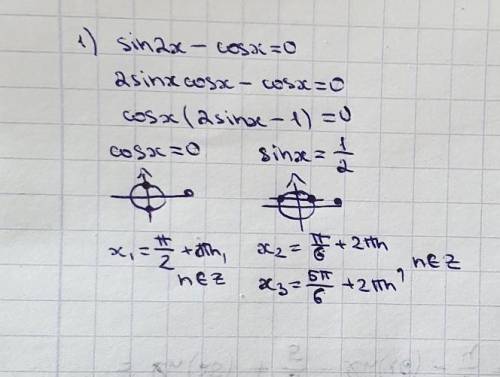 1) sin2x - cosx = 0
2sinx cosx - cosx = 0
cosx (2sinx - 1) = 0
cosx = 0 sinx = 1/2
x₁ = π/2 + πn, n∈Z
x₂ = π/6 + 2πn
x₃ = 5π/6 + 2πn, n∈Z